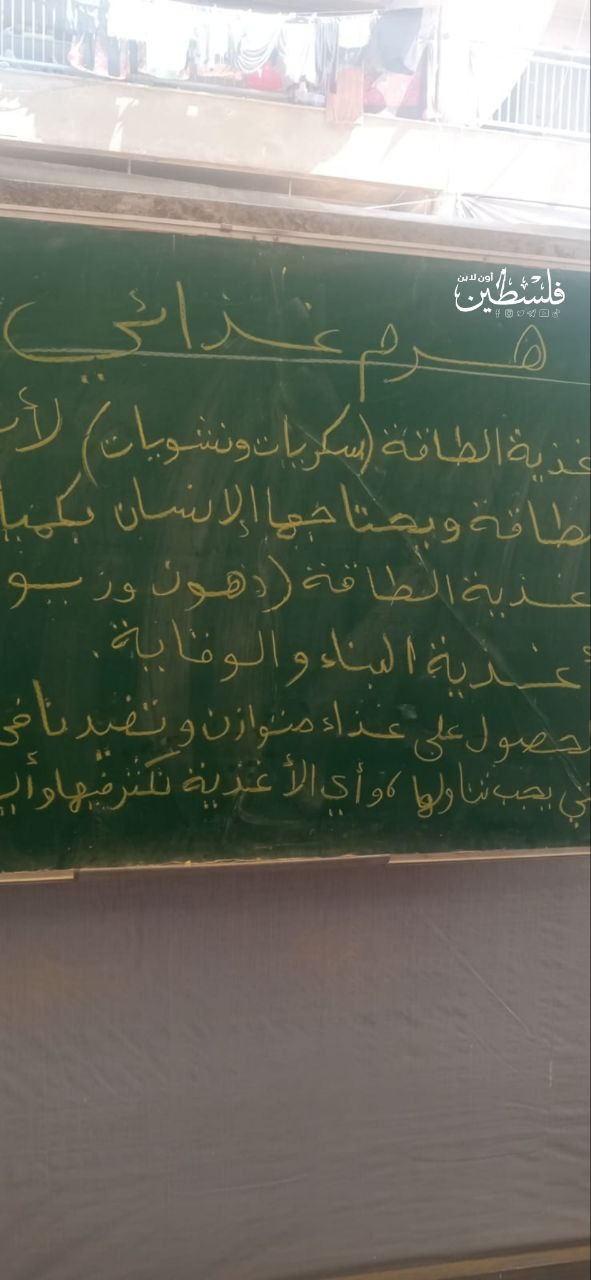 فلسطين
أون لاين
هرم غذائي
غذية الطاقة (سكريات ونشويات) لأ
طاقة ويحتاجها الإنسان بكميا
غذية الطاقة (دهون وزيو
أغذية البناء والوقاية.
لحصول على غذاء متوازن وتفيدنا في
تي يجب تناولها، وأي الأغذية نكثر فيها وأي